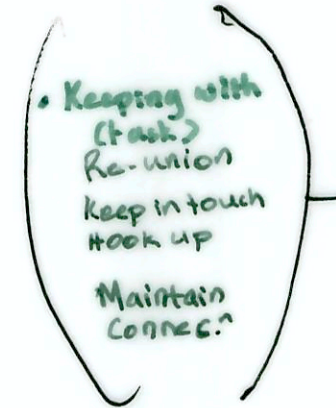 • Keeping with
(task)
Re-union
Keep in touch
Hook up
Maintain
Connec.ⁿ